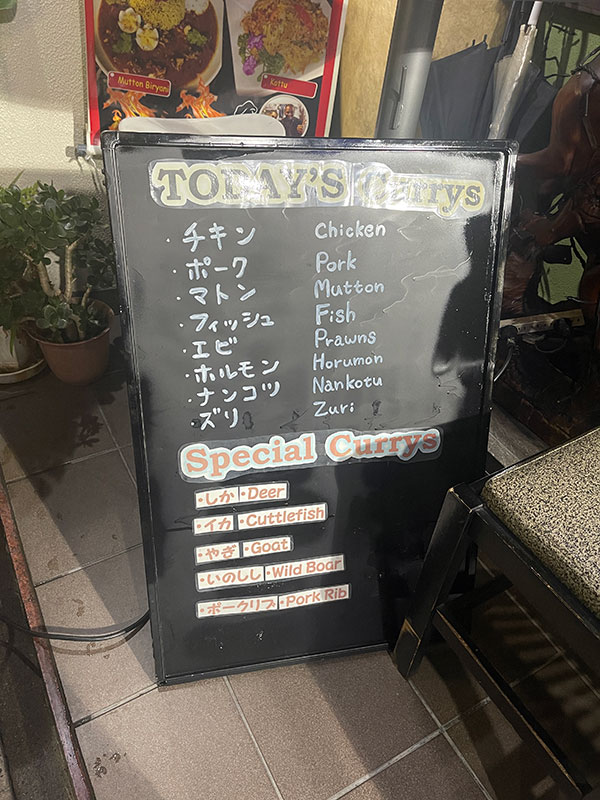 Mutton Biryani
Kottu
TODAY'S Currys
・チキン Chicken
・ポーク Pork
・マトン Mutton
・フィッシュ Fish
・エビ Prawns
・ホルモン Horumon
・ナンコツ Nankotu
・ズリ Zuri
Special Currys
・しか ・Deer
・イカ ・Cuttlefish
・やぎ ・Goat
・いのしし ・Wild Boar
・ポークリブ ・Pork Rib